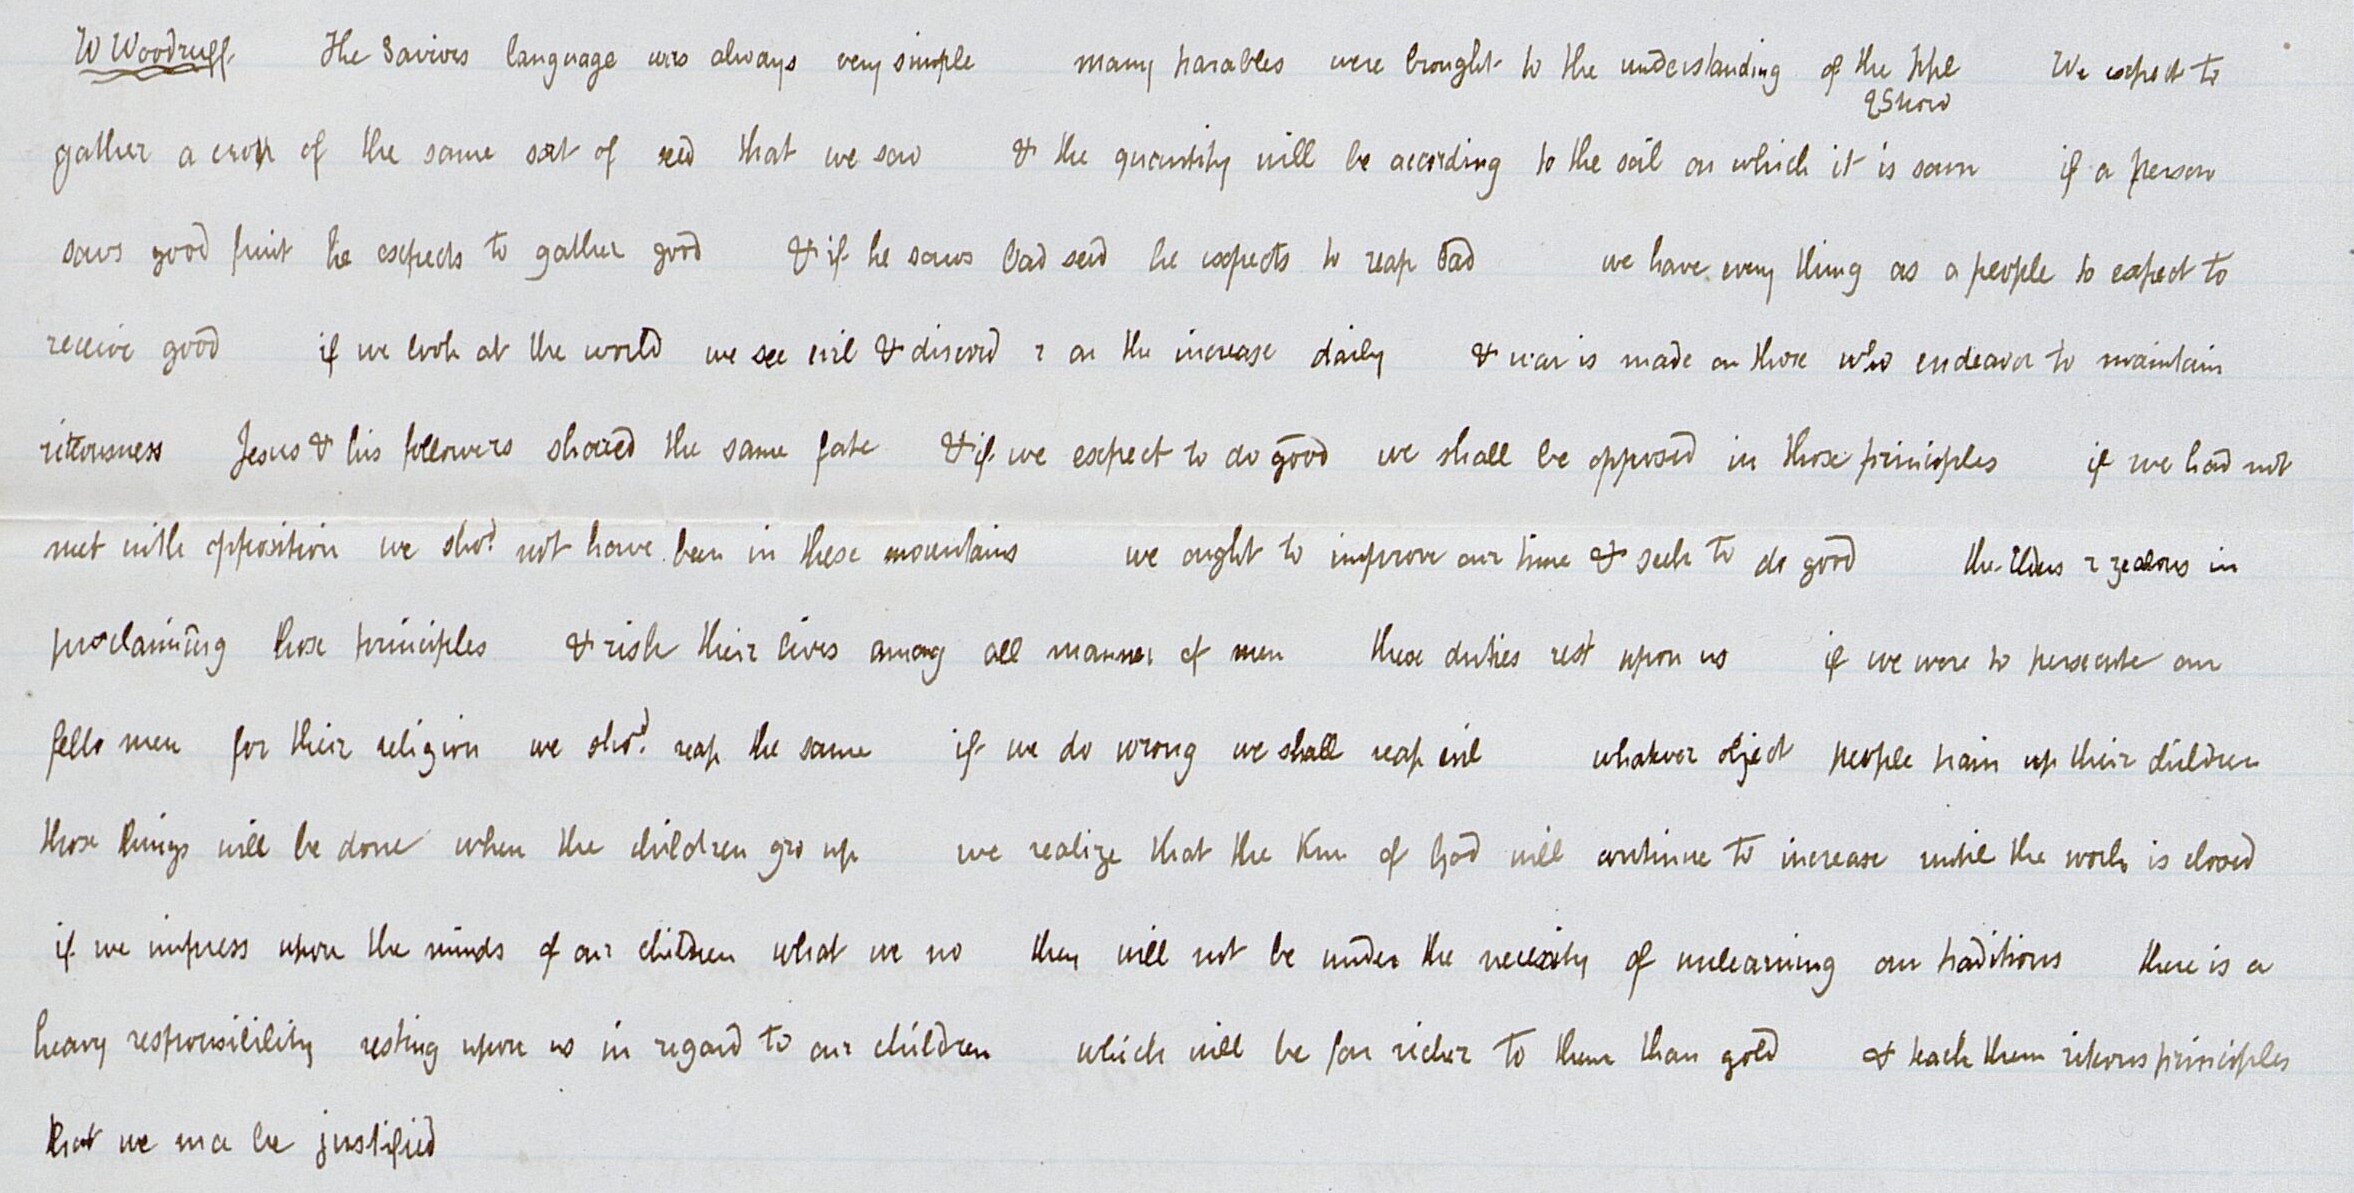 W Woodruff The Saviors language was always very simple many parables were brought to the understanding of the ppl We expect to
gather a crop of the same sort of seed that we sow & the quantity will be according to the soil on which it is sown if a person
sows good fruit he expects to gather good & if he sows bad seed he expects to reap bad we have every thing as a people to expect to
receive good if we look at the world we see evil & discord r on the increase daily & war is made on those who endeavor to maintain
riteousness Jesus & his followers shared the same fate & if we expect to do good we shall be opposed in those principles if we had not
met with opposition we shod. not have been in these mountains we ought to improve our time & seek to do good the Elders r zealous in
proclaiming those principles & risk their lives among all manner of men these duties rest upon us if we were to persecute our
fello men for their religion we shod. reap the same if we do wrong we shall reap evil whatever object people train up their children
those things will be done when the children gro up we realize that the Km of God will continue to increase until the work is closed
if we impress upon the minds of our children what we no they will not be under the necessity of unlearning our traditions there is a
heavy responsibility resting upon us in regard to our children which will be far richer to them than gold & teach them riteous principles
that we ma be justified